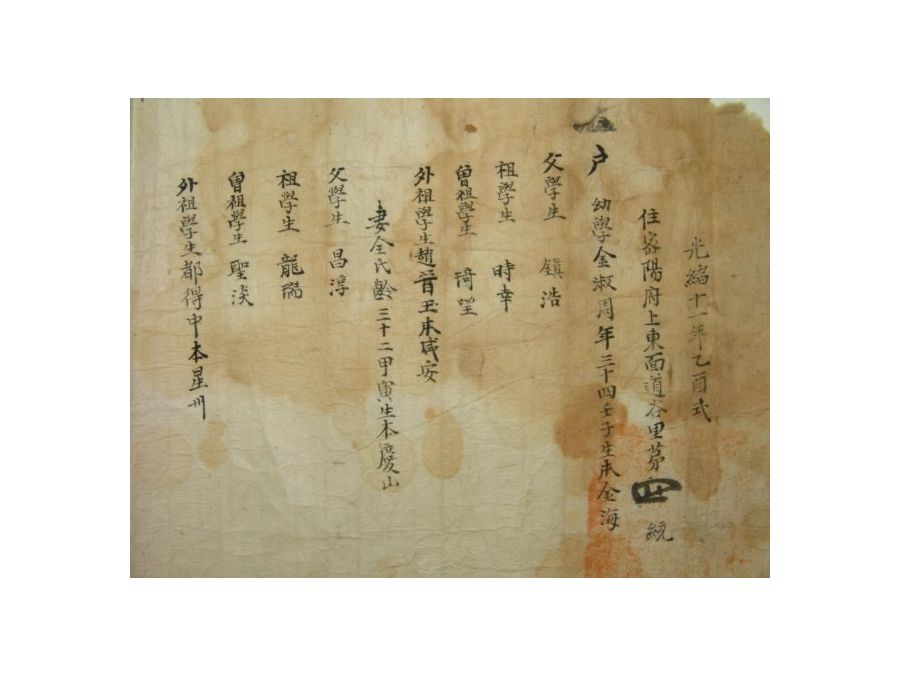 光緖十一年乙酉式
住密陽府上東面道谷里第四統
五
戶 幼學金淑周年三十四壬子生本金海
父學生 鎭浩
祖學生 時幸
曾祖學生 琦
外祖學生趙晉玉本咸安
妻全氏齡三十二甲寅生本慶山
父學生 昌淳
祖學生 龍瑞
曾祖學生 聖淡
外祖學生都得中本星州